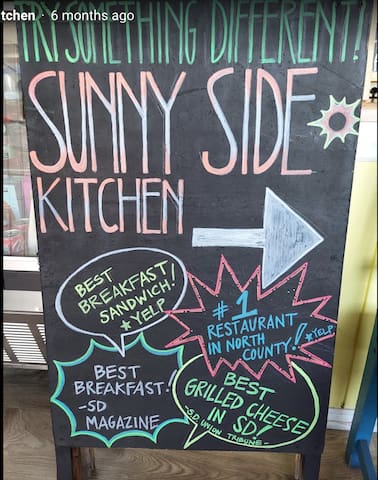 tchen · 6 months ago
TRY SOMETHING DIFFERENT!
SUNNY SIDE
KITCHEN
BEST
BREAKFAST
SANDWICH!
*YELP
#1
RESTAURANT
IN NORTH
COUNTY! *YELP
BEST
BREAKFAST!
-SD
MAGAZINE
BEST
GRILLED CHEESE
IN SD!
-SD UNION TRIBUNE-